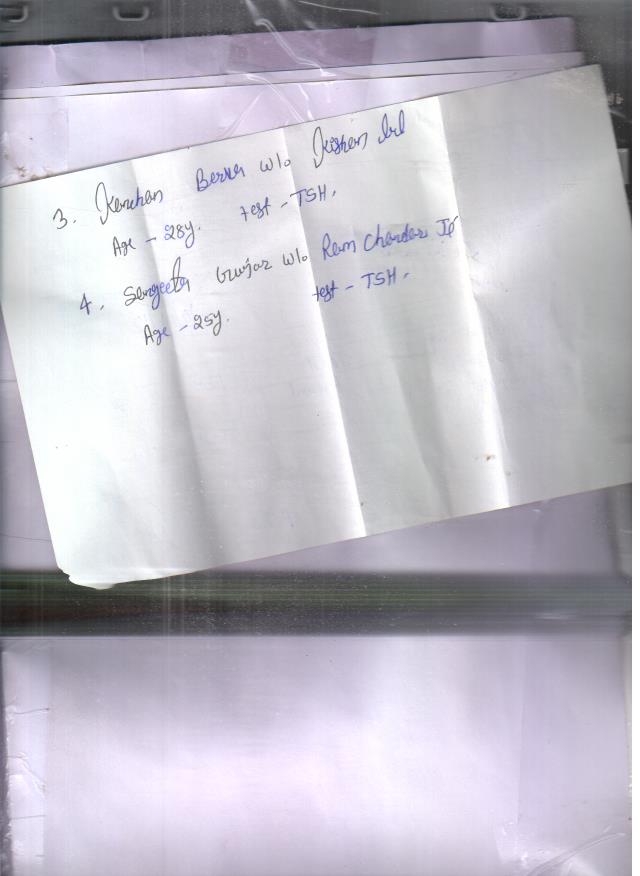 3. Kanchan Berwa w/o Kishan lal
Age - 28y. test - TSH.
4. Sangeeta Gurjar w/o Ram Chandar Ji
Age - 25y. test - TSH.